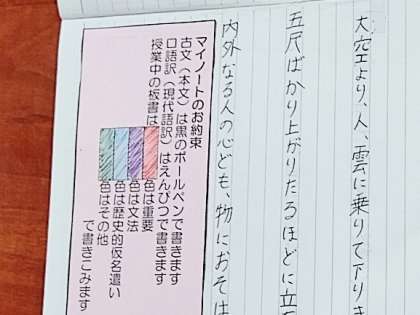 大空より、人、雲に乗りて下りき
五尺ばかり上がりたるほどに立ち
内外なる人の心ども、物におそは
マイノートのお約束
古文（本文）は黒のボールペンで書きます
口語訳（現代語訳）はえんぴつで書きます
授業中の板書は
色は重要
色は文法
色は歴史的仮名遣い
色はその他
で書きこみます